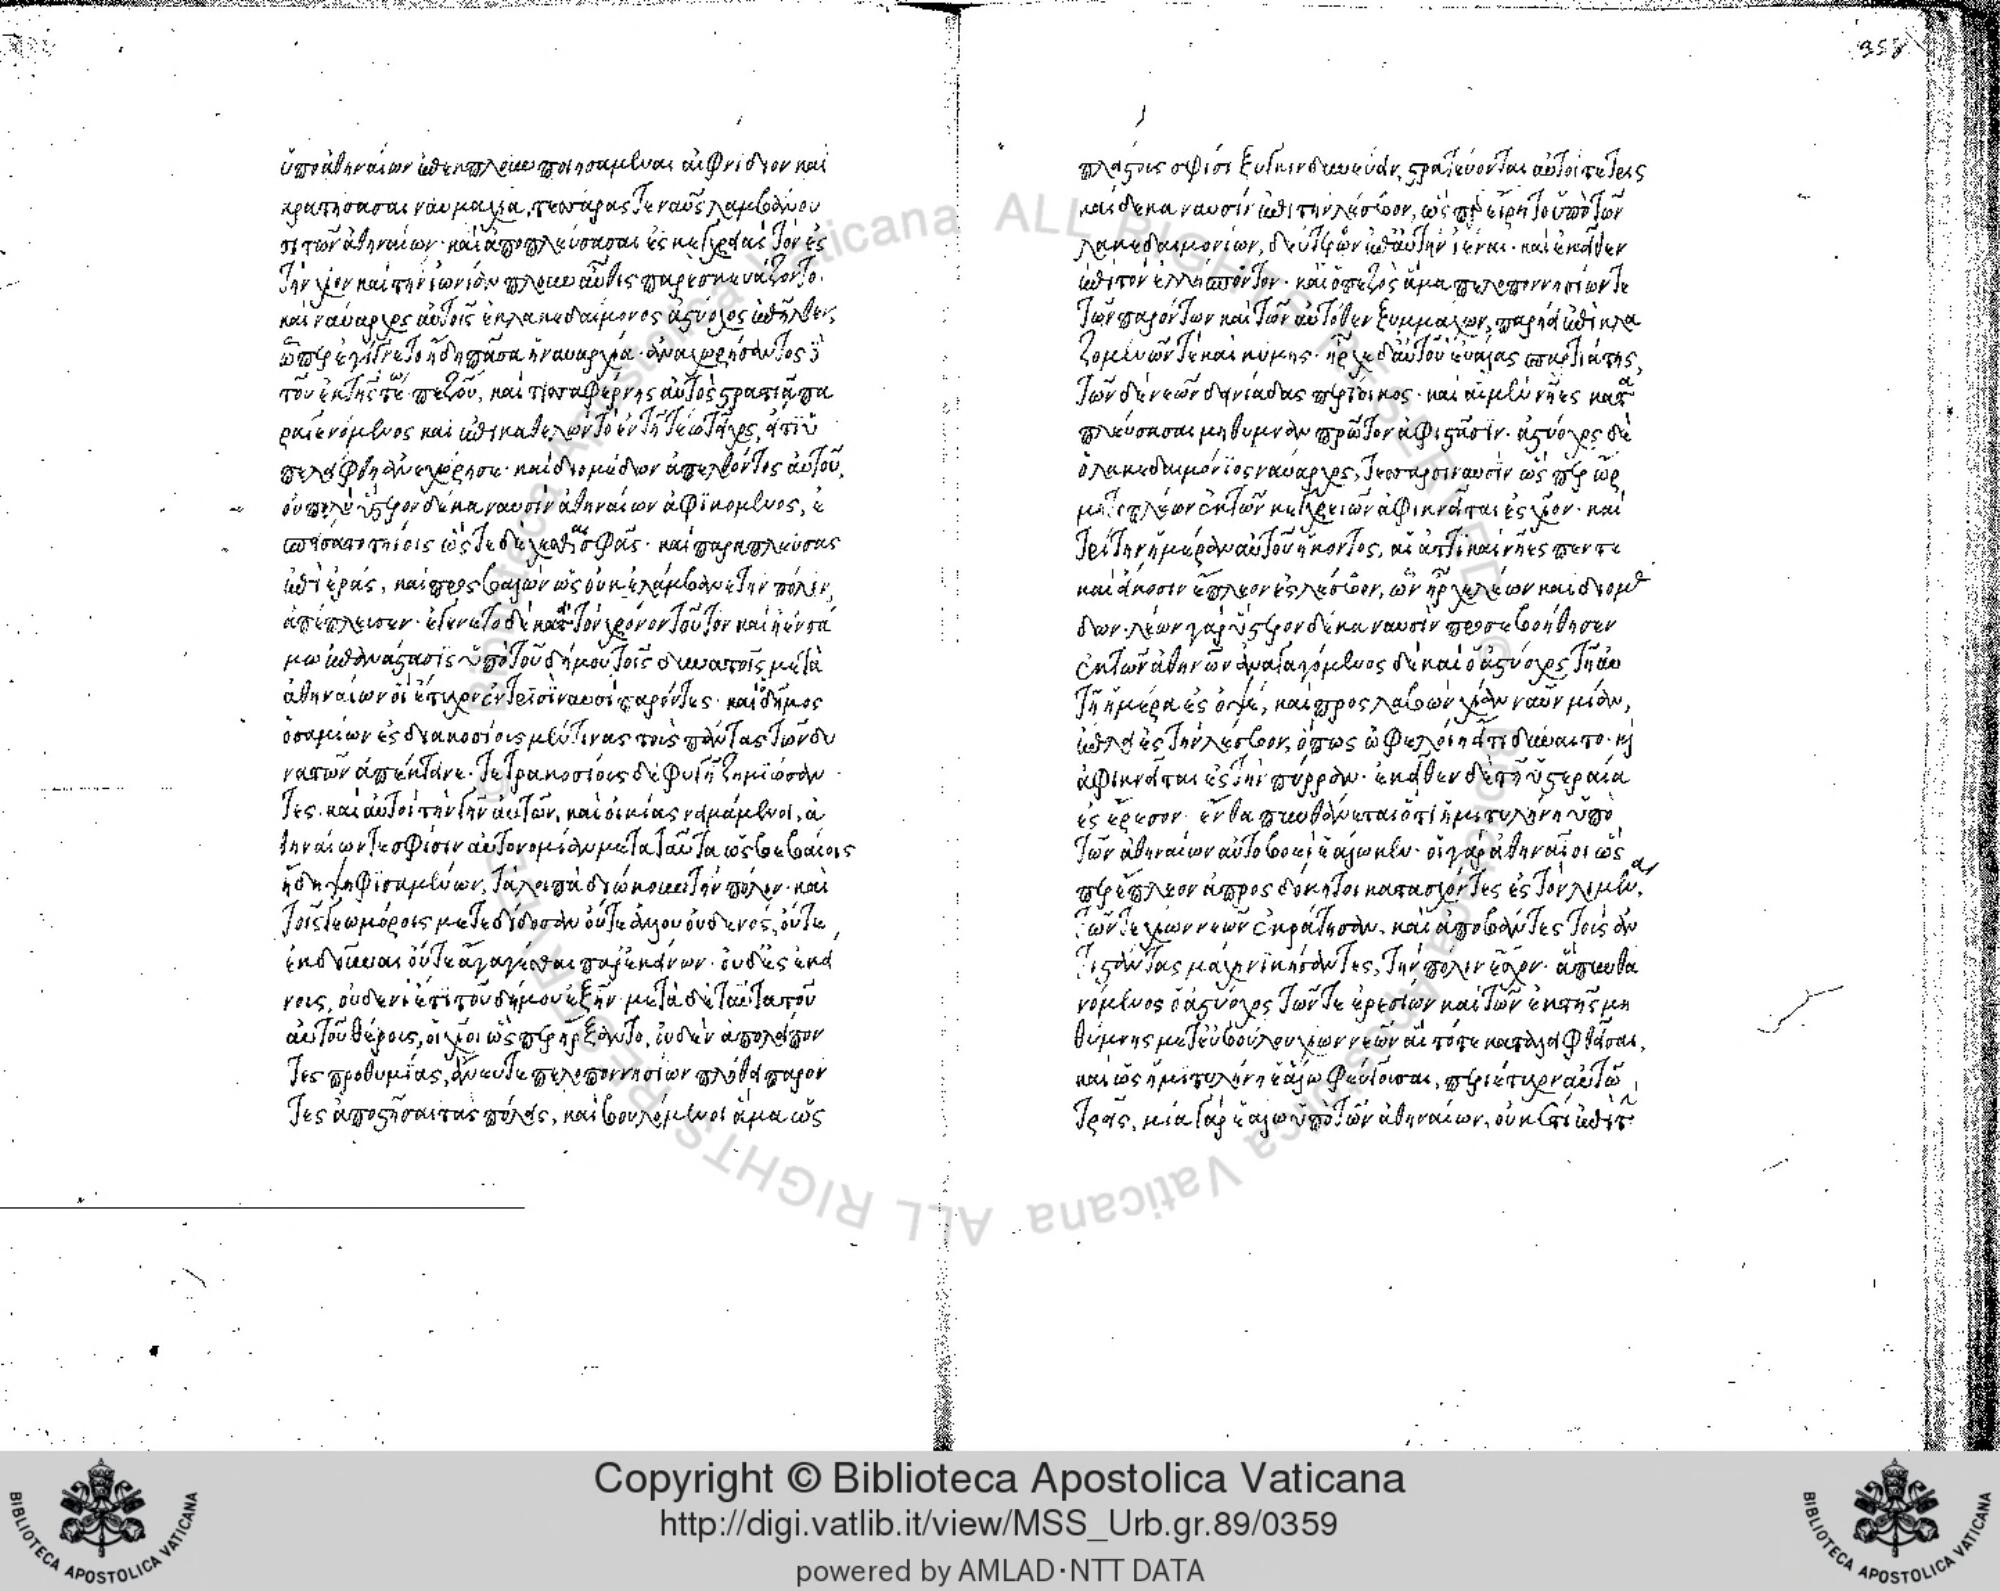 ὑπὸ ἀθηναίων ἐπέκπλουν ποιησάμεναι αἰφνίδιον καὶ
κρατήσασαι ναυμαχία, τέσσαράς τε ναῦς λαμβάνου
σι τῶν ἀθηναίων· καὶ ἀποπλεύσασαι ἐς κεγχρεὰς τὸν ἐς
τὴν χίον καὶ τὴν ἰωνίαν πλοῦν αὖθις παρεσκευάζοντο.
καὶ ναύαρχος αὐτοῖς ἐκ λακεδαίμονος ἀστύοχος ἐπῆλθεν,
ὧπερ ἐγίγνετο ἤδη πᾶσα ἡ ναυαρχία· ἀναχωρήσαντος δὲ
τοῦ ἐκ τῆς τέω πεζοῦ, καὶ τισσαφέρνης αὐτὸς στρατιᾶ πα
ραγενόμενος καὶ ἐπικαθελὼν τὸ ἐν τῆ τέω τεῖχος, εἴ τι ὑ
πελείφθη ἀνεχώρησε· καὶ διομέδων ἀπελθόντος αὐτοῦ,
οὐ πολὺ ὕστερον δέκα ναυσὶν ἀθηναίων ἀφϊκόμενος, ἐ
σπείσατο τηίοις ὥστε δέχεσθαι σφᾶς· καὶ παραπλεύσας
ἐπὶ ἐράς, καὶ προσβαλὼν ὡς οὐκ ἐλάμβανε τὴν πόλιν,
ἀπέπλευσεν· ἐγένετο δὲ κατὰ τὸν χρόνον τοῦτον καὶ ἡ ἐν σά
μω ἐπανάστασις ὑπὸ τοῦ δήμου τοῖς δυνατοῖς μετὰ
ἀθηναίων οἳ ἔτυχον ἐν τρισὶ ναυσὶ παρόντες· καὶ ὁ δῆμος
ὁ σαμίων ἐς διακοσίους μέν τινας τοὺς πάντας τῶν δυ
νατῶν ἀπέκτεινε· τετρακοσίους δὲ φυγῆ ζημϊώσαν
τες· καὶ αὐτοὶ τὴν γῆν αὐτῶν, καὶ οἰκίας νειμάμενοι, ἀ
θηναίων τε σφίσιν αὐτονομίαν μετὰ ταῦτα ὡς βεβαίοις
ἤδη ψηφϊσαμένων, τὰ λοιπὰ διώκουν τὴν πόλιν· καὶ
τοῖς γεωμόροις μετεδίδοσαν οὔτε ἄλλου οὐδενός, οὔτε
ἐκδοῦναι οὔτε ἀγαγέσθαι παρ' ἐκείνων· οὐδ' ἐς ἐκεί
νους, οὐδενὶ ἔτι τοῦ δήμου ἐξῆν· μετὰ δὲ ταῦτα τοῦ
αὐτοῦ θέρους, οἱ χῖοι ὥσπερ ἤρξαντο, οὐδὲν ἀπολείπον
τες προθυμίας, ἄνευ τε πελοποννησίων πλήθει παρόν
τες ἀποστῆσαι τὰς πόλεις, καὶ βουλόμενοι ἅμα ὡς
358
πλείστους σφίσι ξυγκινδυνεύειν, στρατεύονται αὐτοί τε τρις
καίδεκα ναυσὶν ἐπὶ τὴν λέσβον, ὥσπερ εἴρητο ὑπὸ τῶν
λακεδαιμονίων, δεύτερον ἐπ' αὐτὴν ἰέναι· καὶ ἐκεῖθεν
ἐπὶ τὸν ἑλλήσποντον· καὶ ὁ πεζὸς ἅμα πελοποννησίων τε
τῶν παρόντων καὶ τῶν αὐτόθεν ξυμμάχων, παρήει ἐπὶ κλα
ζομενῶν τε καὶ κύμης· ἦρχε δ' αὐτοῦ εὐάλας σπαρτιάτης,
τῶν δὲ νεῶν δεινιάδας περίοικος· καὶ αἱ μὲν νῆες κατα
πλεύσασαι μήθυμναν πρῶτον ἀφιστᾶσιν· ἀστύοχος δὲ
ὁ λακεδαιμόνϊος ναύαρχος, τέσσαρσι ναυσὶν ὥσπερ ὥρ
μητο πλέων ἐκ τῶν κεγχρειῶν ἀφικνεῖται ἐς χίον· καὶ
τρίτην ἡμέραν αὐτοῦ ἥκοντος, αἱ ἀττικαὶ νῆες πέντε
καὶ εἴκοσιν ἔπλεον ἐς λέσβον, ὧν ἦρχε λέων καὶ διομέ
δων· λέων γὰρ ὕστερον δέκα ναυσὶν προσεβοήθησεν
ἐκ τῶν ἀθηνῶν ἀναγαγόμενος δὲ καὶ ὁ ἀστύοχος τῆ αὐ
τῆ ἡμέρα ἐς ὀψέ, καὶ προσλαβὼν χίαν ναῦν μίαν,
ἔπλει ἐς τὴν λέσβον, ὅπως ὠφελοίη εἴ τι δύναιτο· κὶ
ἀφικνεῖται ἐς τὴν πύρραν· ἐκεῖθεν δὲ τῆ ὑστεραία
ἐς ἔρεσον· ἔνθα πυνθάνεται ὅτι ἡ μιτυλήνη ὑπὸ
τῶν ἀθηναίων αὐτοβοεὶ ἑάλωκεν· οἱ γὰρ ἀθηναῖοι ὥσ
περ ἔπλεον ἀπροσδόκητοι κατασχόντες ἐς τὸν λιμένα,
τῶν τε χίων νεῶν ἐκράτησαν, καὶ ἀποβάντες τοὺς ἀν
τιστάντας μάχη νϊκήσαντες, τὴν πόλιν ἔσχον· ἃ πυνθα
νόμενος ὁ ἀστύοχος τῶν τε ἐρεσίων καὶ τῶν ἐκ τῆς μη
θύμνης μετ' εὐβούλου χίων νεῶν αἳ τότε καταλειφθεῖσαι,
καὶ ὡς ἡ μιτυλήνη ἑάλω φεύγουσαι, περιέτυχον αὐτῶ
τρεῖς, μία γὰρ ἑάλω ὑπὸ τῶν ἀθηναίων, οὐκέτι ἐπὶ τὴν
Copyright © Biblioteca Apostolica Vaticana
http://digi.vatlib.it/view/MSS_Urb.gr.89/0359
powered by AMLAD·NTT DATA